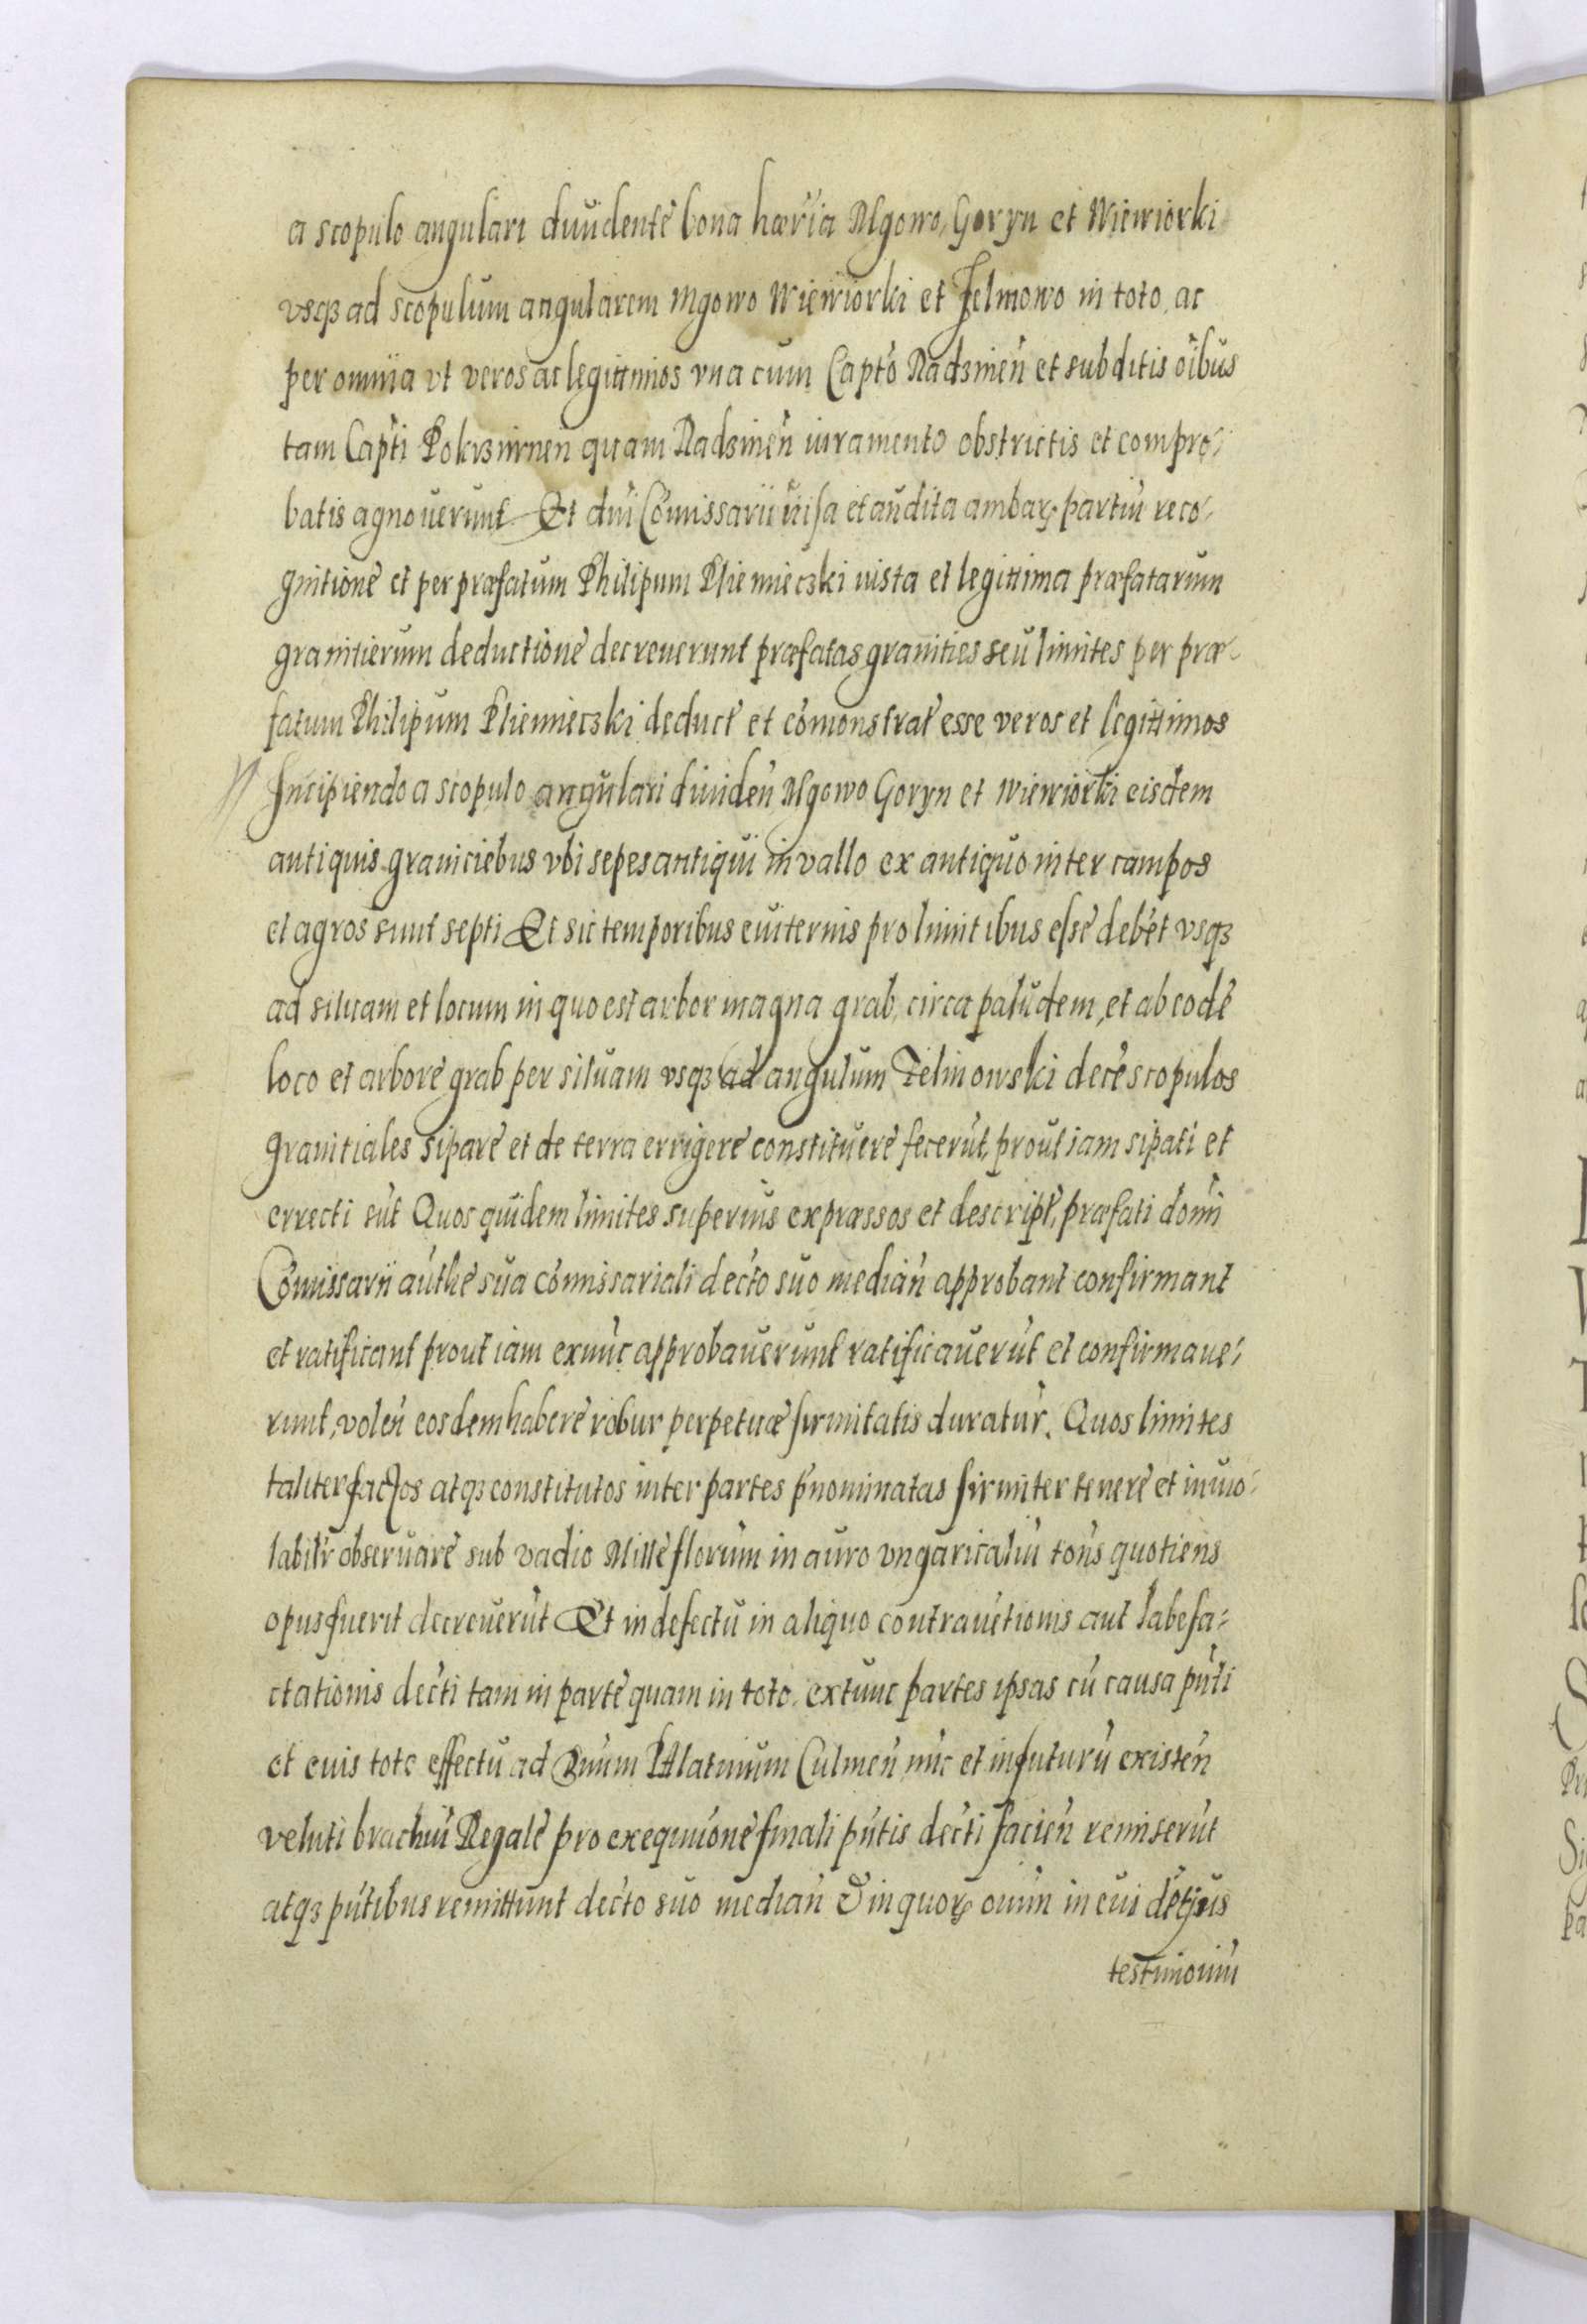 a scopulo angulari diuidente bona hæria Mgowo, Goryn et Wiewiorki
vsqz ad scopulum angularem Mgowo Wiewiorki et Jelmowo in toto, ac
per omnia vt veros ac legittimos vna cum Capto Radzinen et subditis oibus
tam Capti Pokrziwnen quam Radzinen iuramento obstrictis et compro-
batis agnouerunt Et dni Comissarii uisa et audita ambarum partiu reco-
gnitione et per præfatum Philipum Pliemieczki iusta et legittima præfatarum
granitierum deductione decreuerunt præfatas granities seu limites per præ-
fatum Philipum Pliemieczki deduct et comonstrat esse veros et legittimos
Incipiendo a scopulo angulari diuiden Mgowo Goryn et Wiewiorki eisdem
antiquis graniciebus vbi sepes antiqui in vallo ex antiquo inter campos
et agros sunt septi Et sic temporibus euiternis pro limitibus esse debet vsqz
ad siluam et locum in quo est arbor magna grab, circa paludem, et ab eode
loco et arbore grab per siluam vsqz ad angulum Jelmowski dece scopulos
granitiales sipare et de terra errigere constituere fecerut, prout iam sipati et
errecti sut Quos quidem limites superius expressos et descript, præfati domi
Comissarii authe sua comissariali decto suo median approbant confirmant
et ratificant prout iam exnuc approbauerunt ratificauerut et confirmaue-
runt, volen eosdem habere robur perpetuæ firmitatis duratur. Quos limites
taliter factos atqz constitutos inter partes pnominatas firmiter tenere et inuio-
labilr obseruare sub vadio Mille florum in auro vngaricaliu tons quotiens
opus fuerit decreuerut Et in defectu in aliquo contrauetionis aut labefa-
ctationis decti tam in parte quam in toto, extunc partes ipsas cu causa pnti
et euis toto effectu ad Dnum Pallatinum Culmen nuc et in futuru existen
veluti brachiu Regale pro exequuione finali pntis decti facien remiserut
atqz pntibus remittunt decto suo median In quorum omim in eui detius
testimoniu